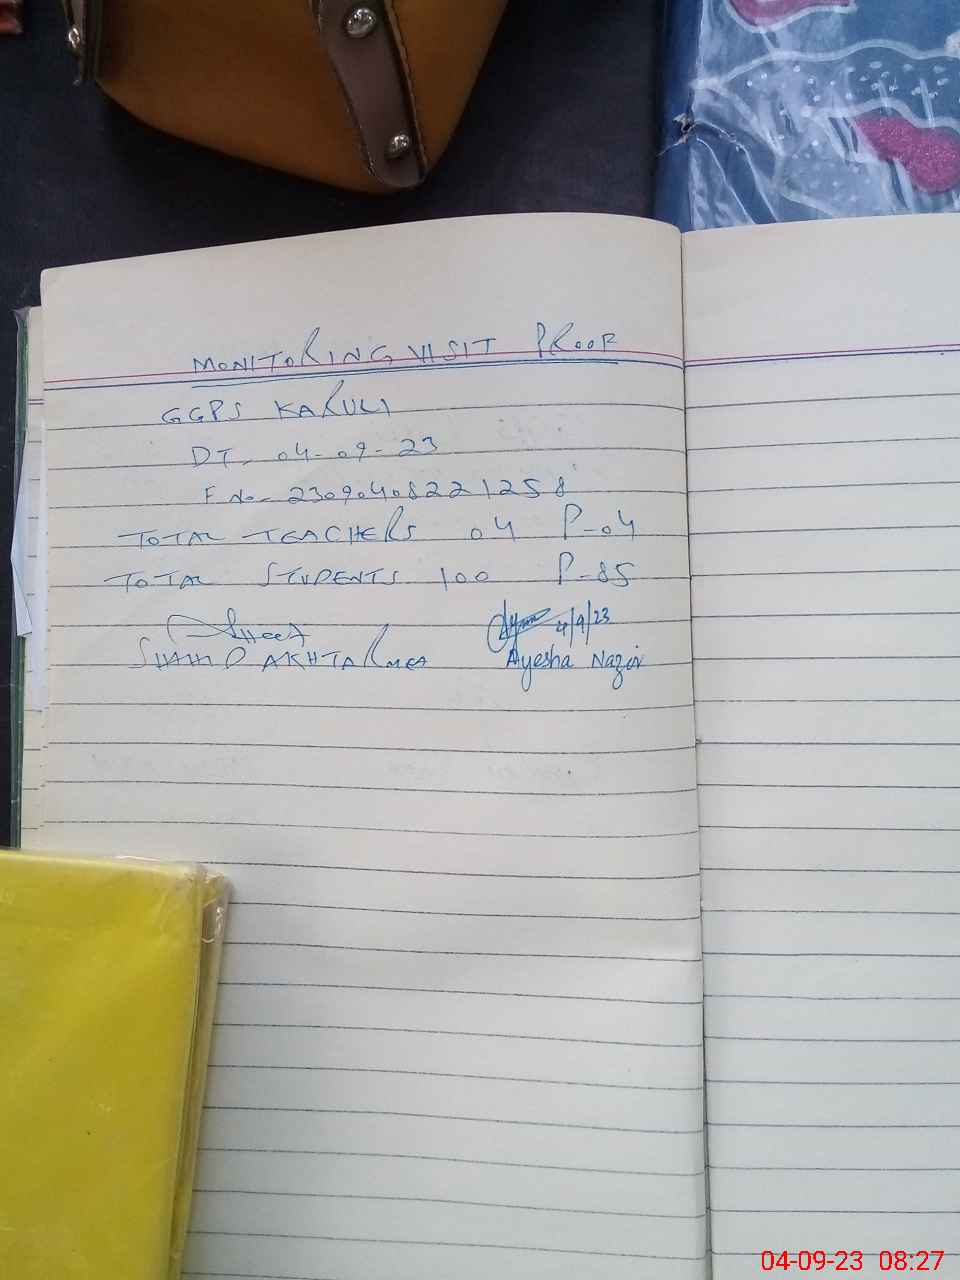 MONITORING VISIT PROOF
GGPS KARULI
DT. 04-09-23
F No- 2309040822 1258
TOTAL TEACHERS 04 P-04
TOTAL STUDENTS 100 P-85
4/9/23
SHAHID AKHTAR MEA Ayesha Nazir
04-09-23 08:27